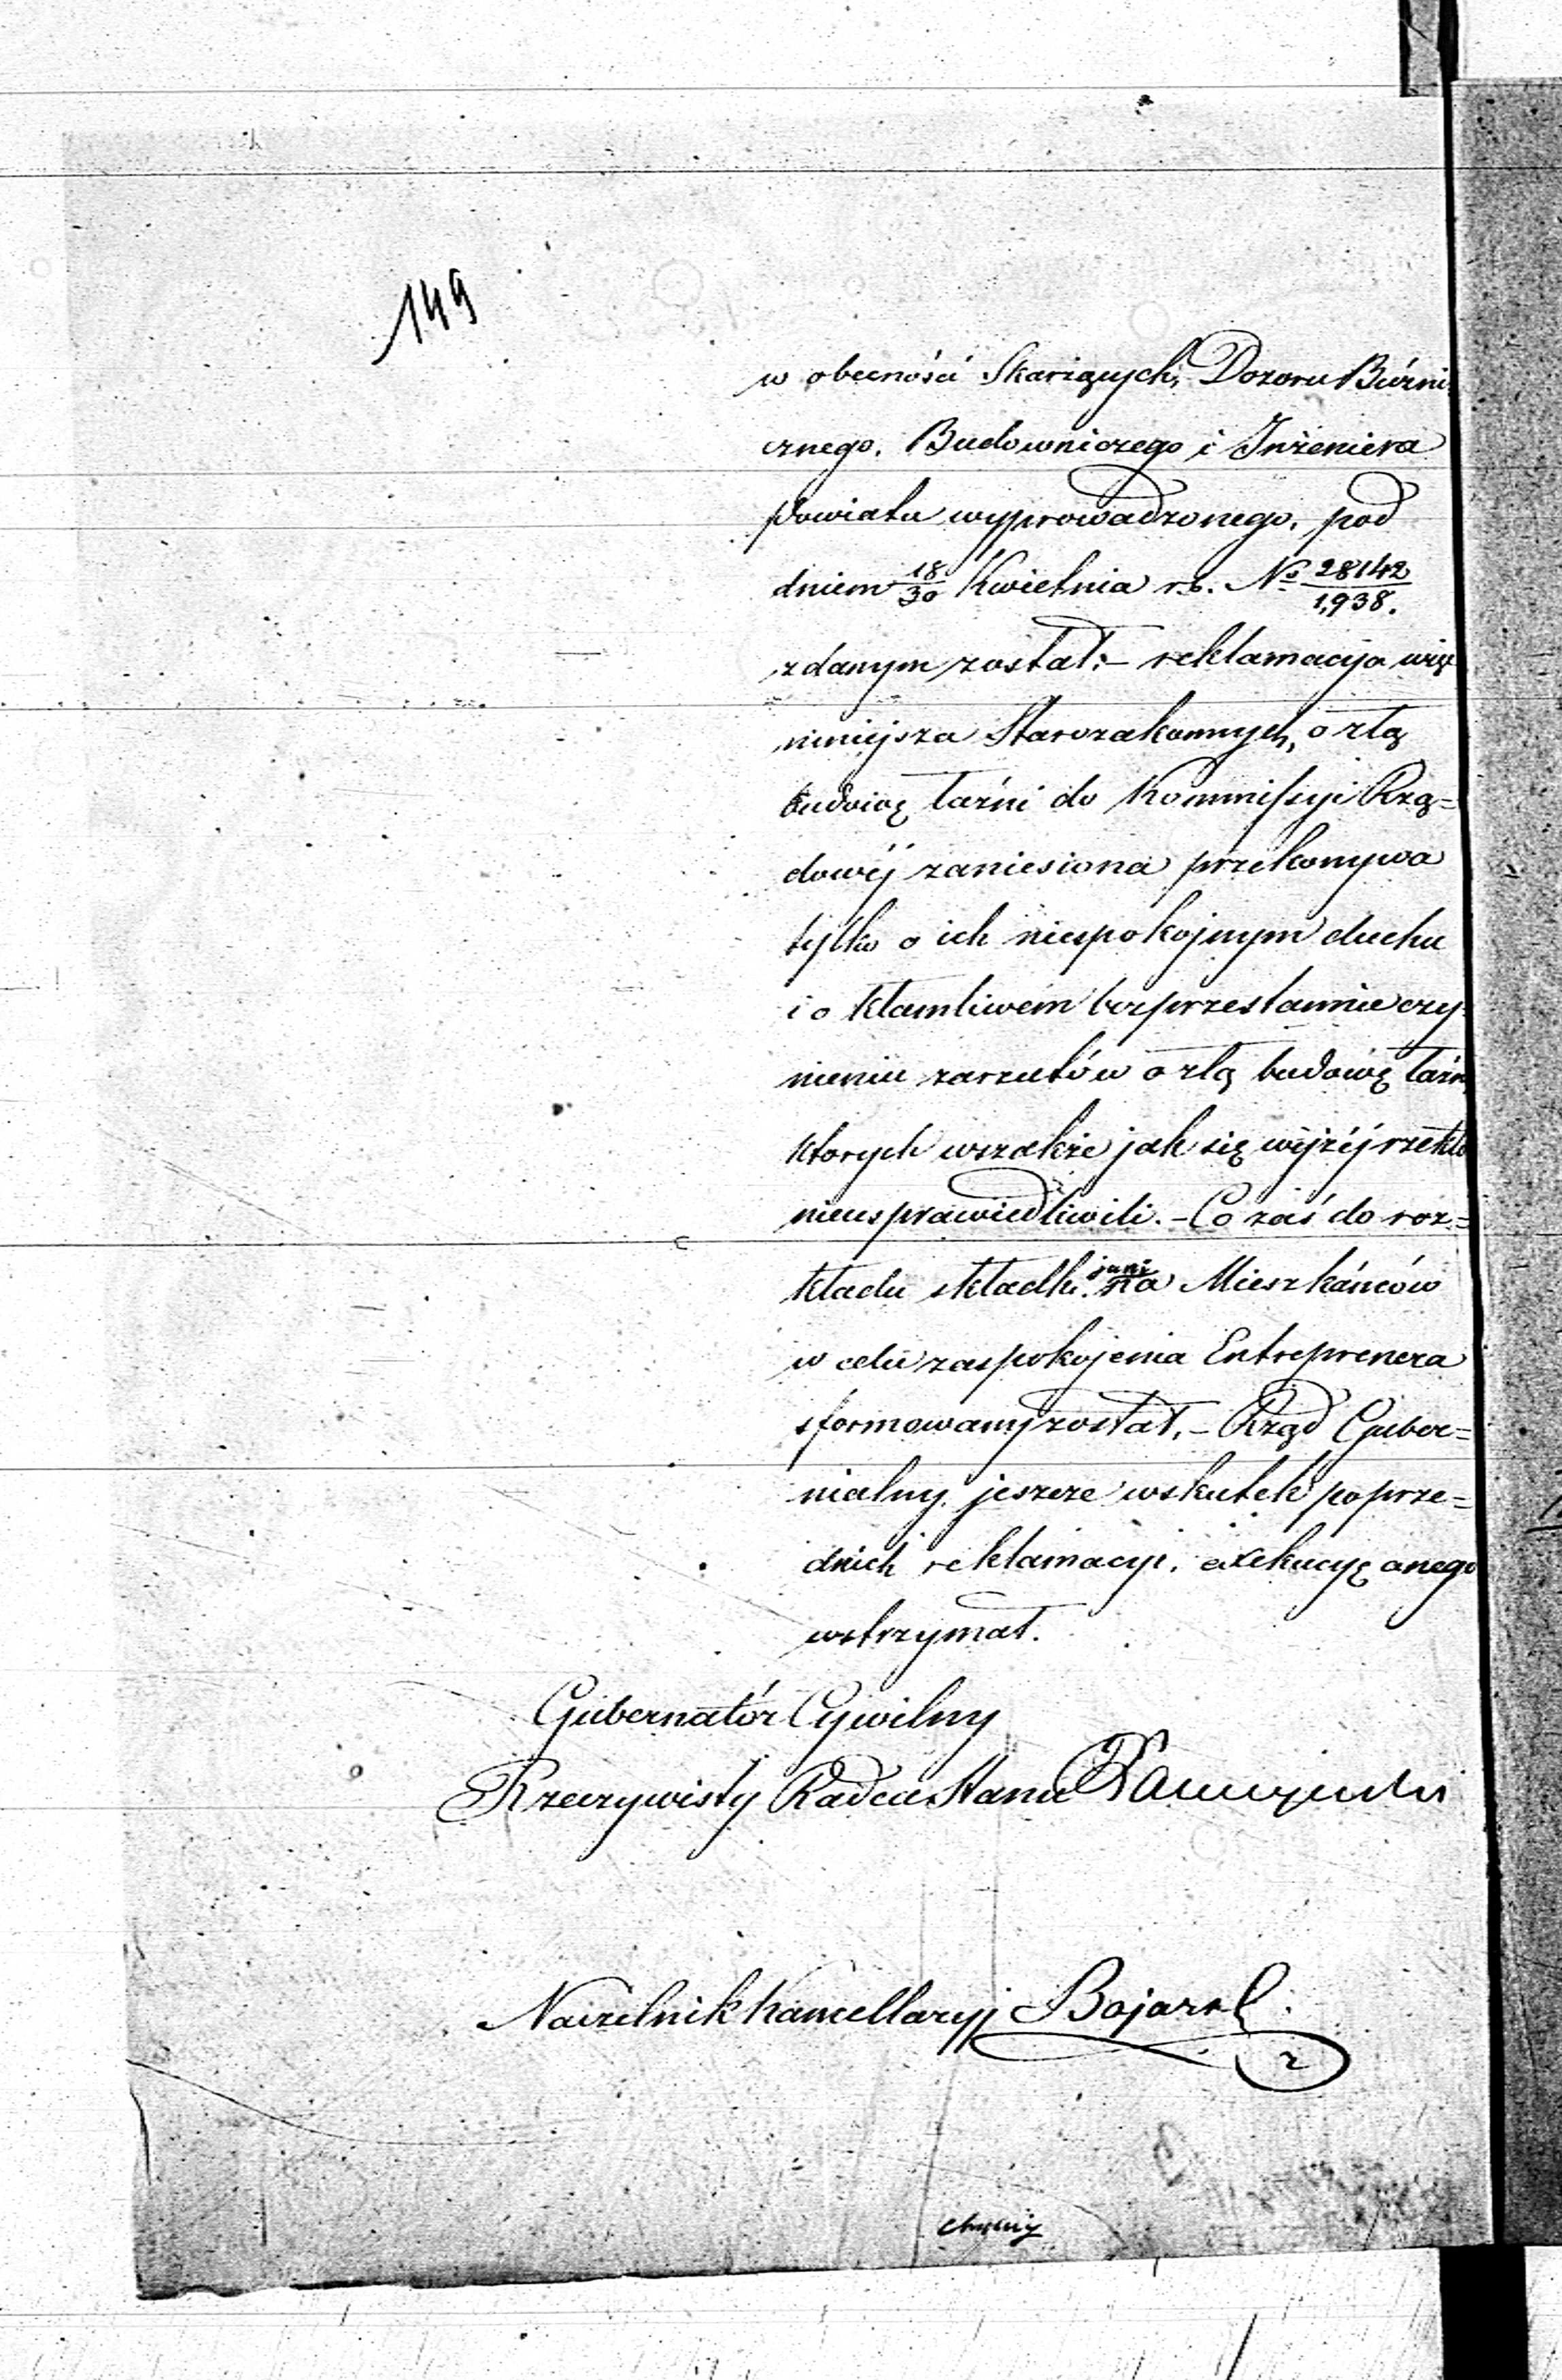 149
w obecności Skarżących, Dozoru Bóżni
cznego, Budowniczego i Inżeniera
Powiatu wyprowadzonego, pod
dniem 18/30 Kwietnia r.b. № 28142/1,938.
zdanym został:– reklamacyja więc
niniejsza Starozakonnych, o złą
budowę łaźni do Kommissyi Rzą=
dowéj zaniesiona przekonywa
tylko o ich niespokojnym duchu
i o kłamliwém bezprzestannie czy
nieniu zarzutów o złą budowę łaźni
których wszakże jak się wyżéj rzekło
nieusprawiedliwili. – Co zaś do roz=
kładu składki jaki na Mieszkańców
w celu zaspokojenia Entreprenera
sformowany został, – Rząd Guber=
nialny jeszcze wskutek poprze=
dnich reklamacyi, exekucyę onego
wstrzymał.
Gubernatór Cywilny
Rzeczywisty Radca Stanu
Naczelnik Kancellaryj Bojarsk